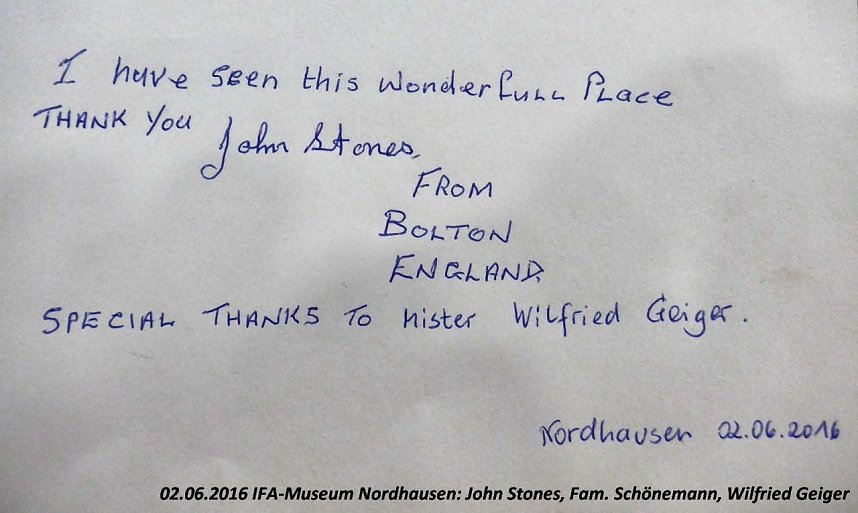 I have seen this wonderfull Place
THANK You
John Stones,
FROM
BOLTON
ENGLAND.
SPECIAL THANKS To Mister Wilfried Geiger.
Nordhausen 02.06.2016
02.06.2016 IFA-Museum Nordhausen: John Stones, Fam. Schönemann, Wilfried Geiger